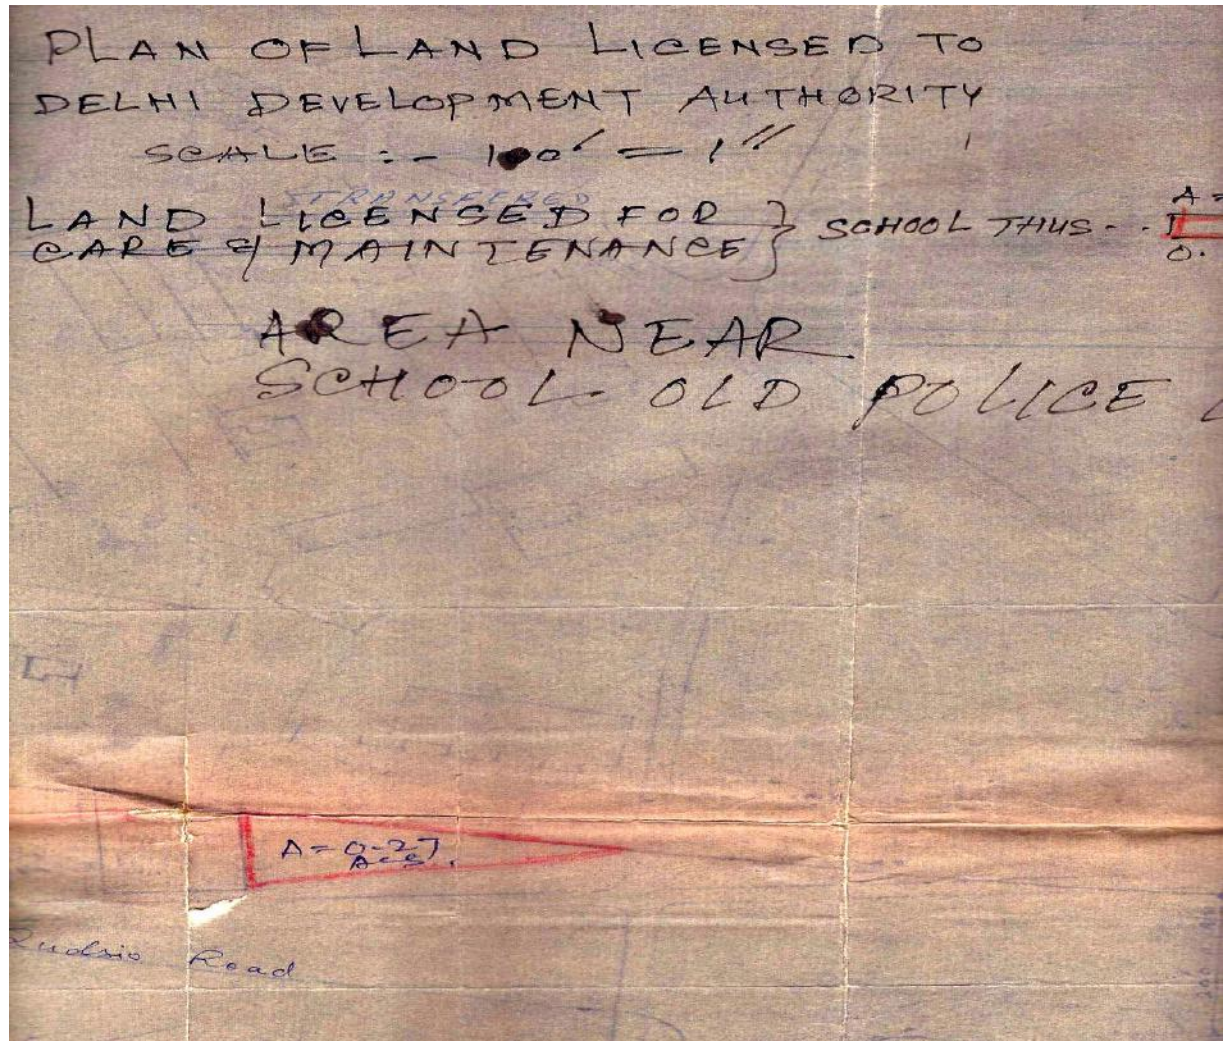 PLAN OF LAND LICENSED TO
DELHI DEVELOPMENT AUTHORITY
SCALE :- 100' = 1"
TRANSFERRED
LAND LICENSED FOR } SCHOOL THUS - . A =
CARE & MAINTENANCE } O.
AREA NEAR
SCHOOL OLD POLICE
A = 0-27
ACS.
Qudsia Road